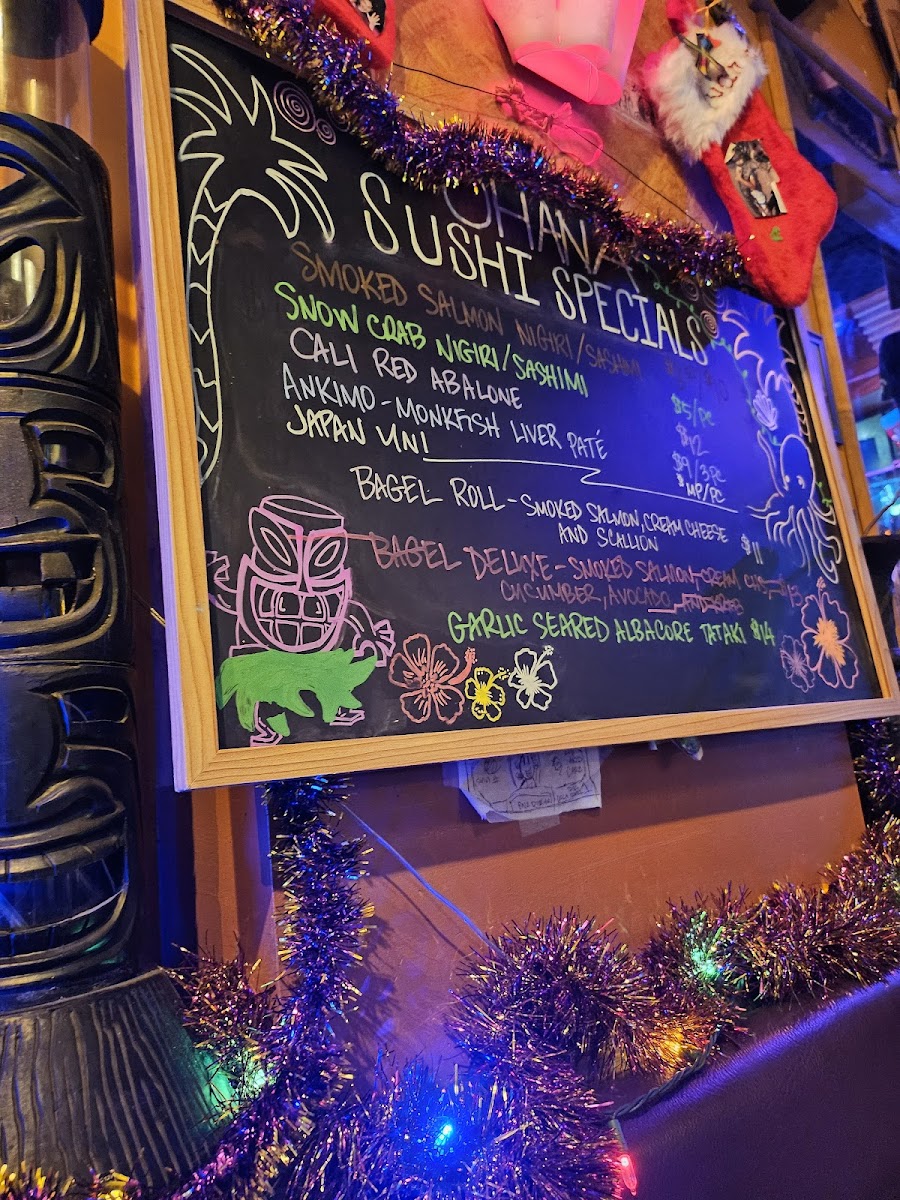 OHANA
SUSHI SPECIALS
SMOKED SALMON NIGIRI/SASHIMI
SNOW CRAB NIGIRI/SASHIMI
CALI RED ABALONE $15/PC
ANKIMO - MONKFISH LIVER PATÉ $12
JAPAN UNI $9/3PC
$MP/PC
BAGEL ROLL - SMOKED SALMON, CREAM CHEESE
AND SCALLION $11
BAGEL DELUXE - SMOKED SALMON, CREAM
CUCUMBER, AVOCADO, AND CRAB
GARLIC SEARED ALBACORE TATAKI $14